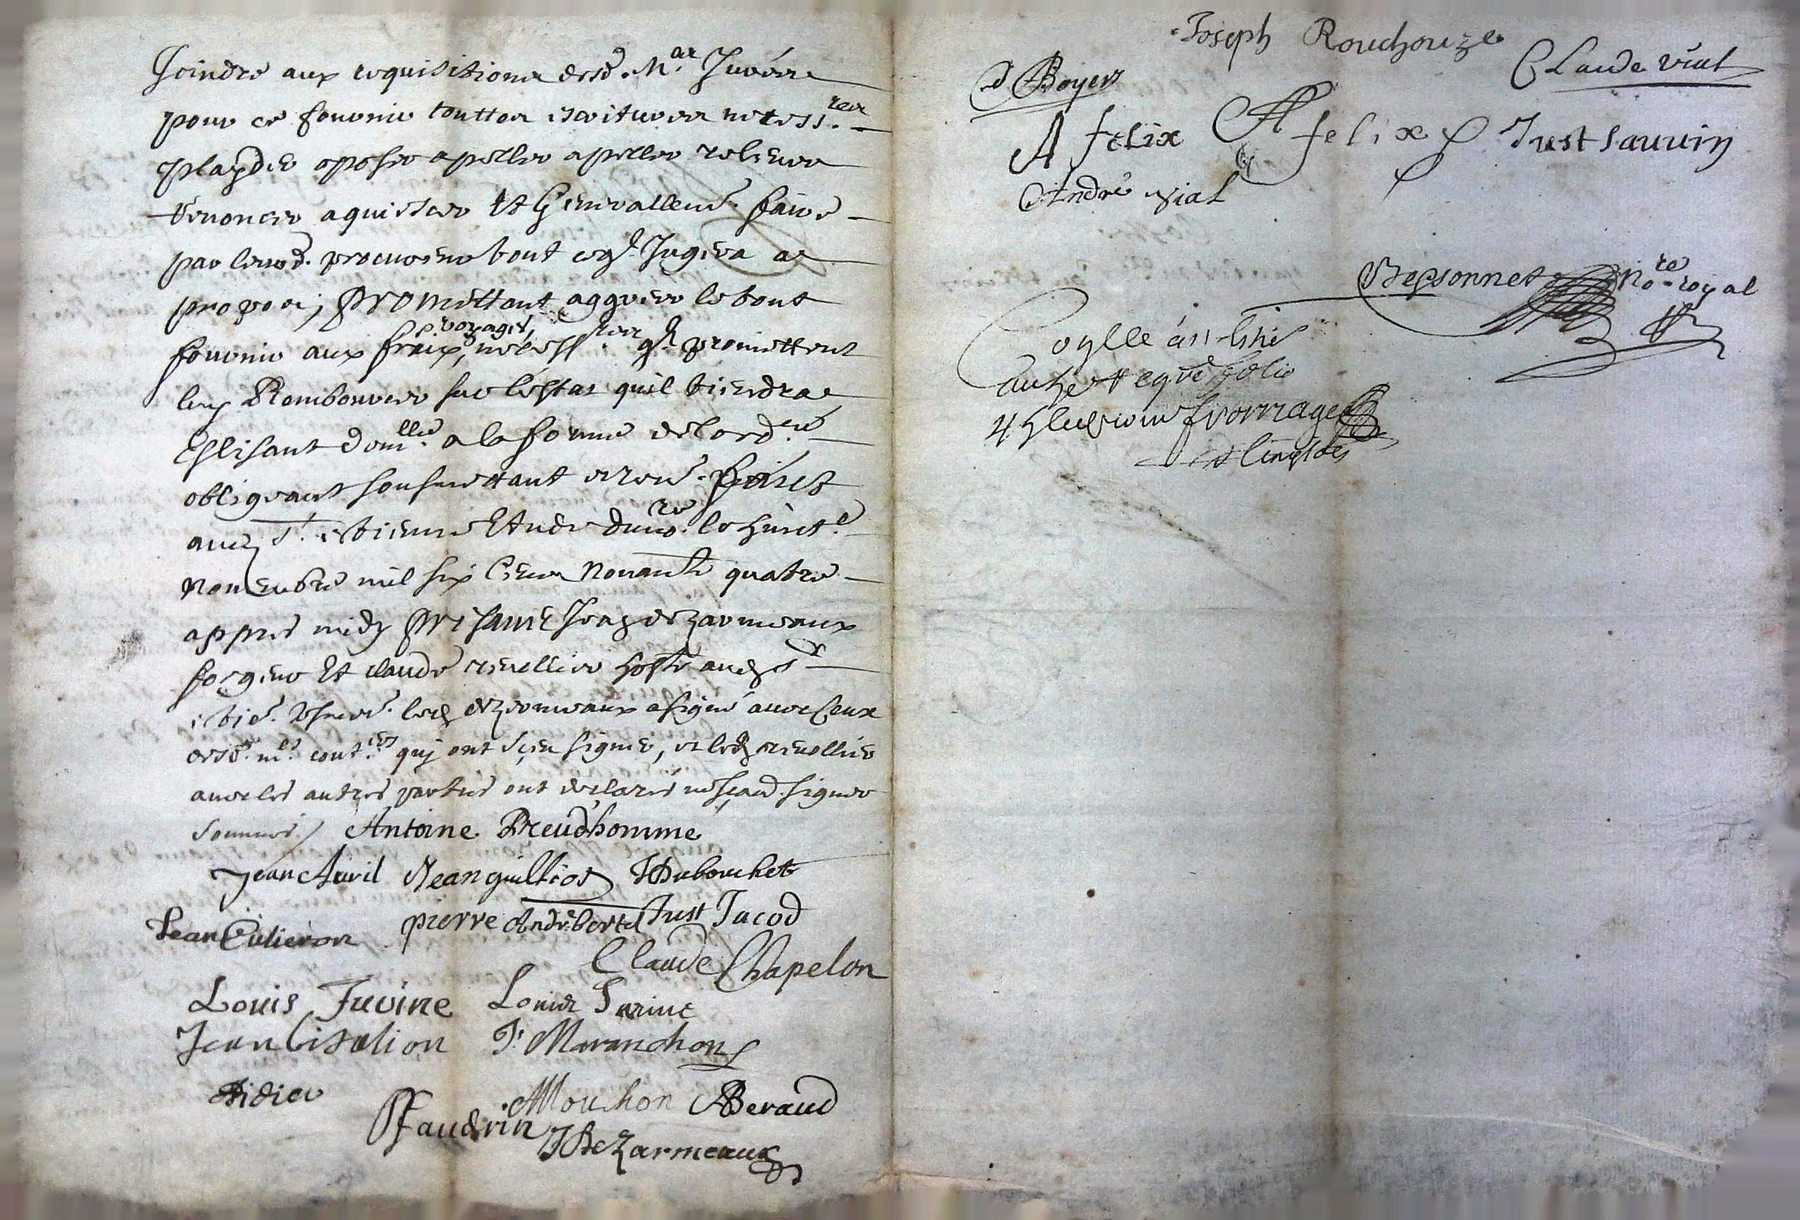 Joindre aux requisitions desd. Mar Juvine
pour ce fournir touttes escritures necess.res
playder oposer apeller apeller relever
renoncer aquiesser Et Generallemt. faire
par leurd. procureur tout ce q. Jugera a
propos; promettant aggreer le tout
fournir aux fraix, voyages, necess.res q. promettent
luy Rembourser sur l'estat quil tiendra
Eslisant dom.lle a la forme de lord.ce
obligeant soumettant renon. faict
aud. St. estienne Etude du no.re le huict.e
novembre mil six Cens Nonante quatre
appres midy presants Jean dezarmeaux
forgeur Et claude revollier hoste aud. St
esti. led. dezarmeaux a signé avec Ceux
desd. qui ont sçeu signer, et led. revollier
avec les autres parties ont declaré ne sçavoir signer
sommés / Antoine Preudhomme
Jean Avril Jean guilliod JDubouchet
Jean Culieron pierre Andribertel Just Jacod
Claude Chapelon
Louis Juvine Louis Jurine
Jean Cisalion F. Maranchon
didier Mouchon ABeraud
Faudrin
JDeZarmeaux
Joseph Rouchouze
D Boyer Claude vial
A felix A felix Just Sauvin
André vial
Bessonnet No.re royal
4 fromage